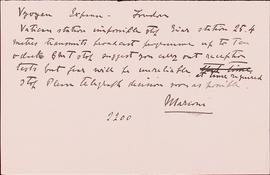 Vyvyan Expanse - London
Vatican station impossible stop Eiar station 25.4
metres transmits broadcast programme up to Ten
o'clock GMT stop suggest you carry out reception
tests but fear will be unreliable at time required
stop Please telegraph decision soon as possible
Marconi
1200